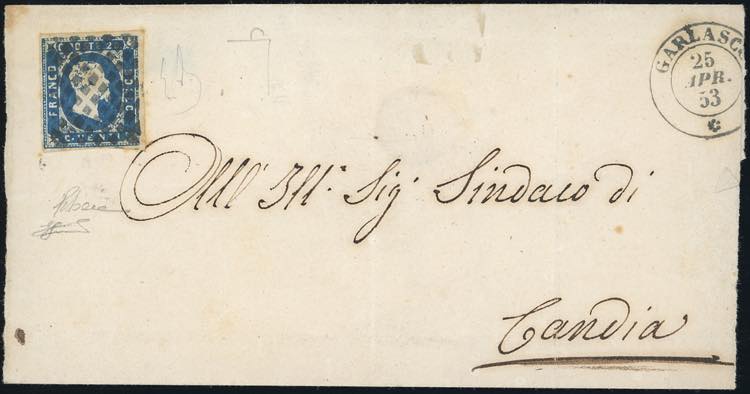 C. VENTI
FRANCO
BOLLO
GARLASCO
25
APR.
53
All' Ill.º Sig.r Sindaco di
Candia